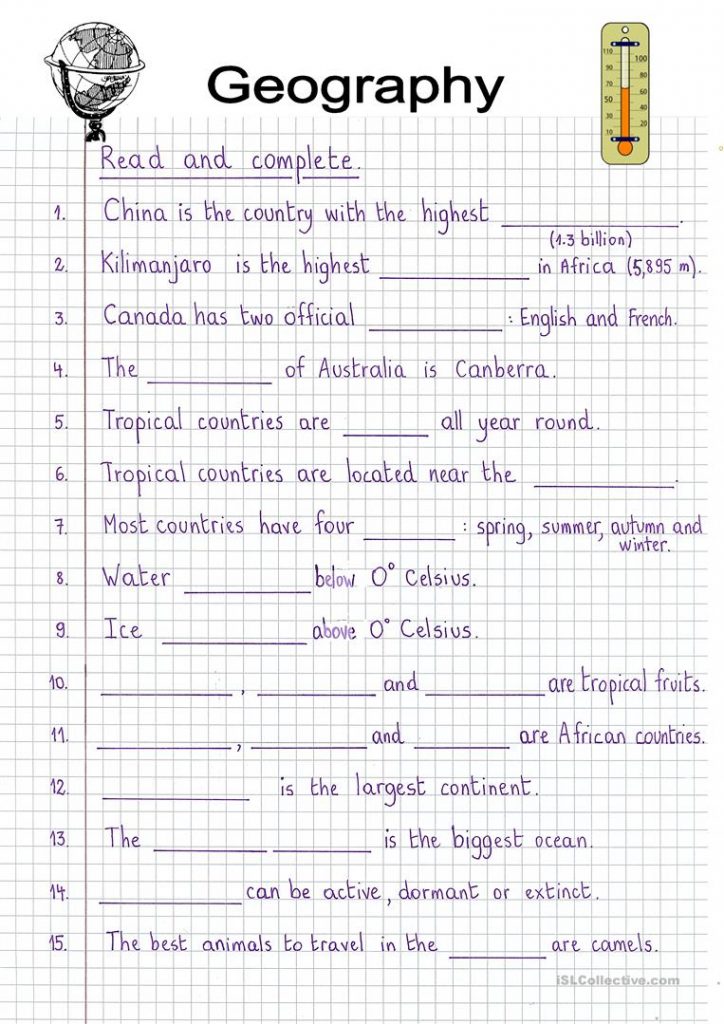 Geography
110 90 70 50 30 10
100 80 60 40 20
Read and complete.
1. China is the country with the highest ____________.
(1.3 billion)
2. Kilimanjaro is the highest ____________ in Africa (5,895 m).
3. Canada has two official ____________ : English and French.
4. The ____________ of Australia is Canberra.
5. Tropical countries are ________ all year round.
6. Tropical countries are located near the ____________.
7. Most countries have four ________ : spring, summer, autumn and
winter.
8. Water ____________ below 0° Celsius.
9. Ice ____________ above 0° Celsius.
10. ____________, ____________ and ____________ are tropical fruits.
11. ____________, ____________ and ____________ are African countries.
12. ____________ is the largest continent.
13. The ____________ ____________ is the biggest ocean.
14. ____________ can be active, dormant or extinct.
15. The best animals to travel in the ________ are camels.
iSLCollective.com